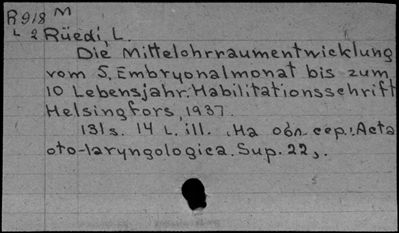 R918 M
L 2 Rüedi, L.
Die Mittelohrraumentwicklung
vom 5. Embryonalmonat bis zum
10 Lebensjahr. Habilitationsschrift
Helsingfors, 1937.
131 s. 14 L. ill. На обл. сер.: Acta
oto-laryngologica. Sup. 22.